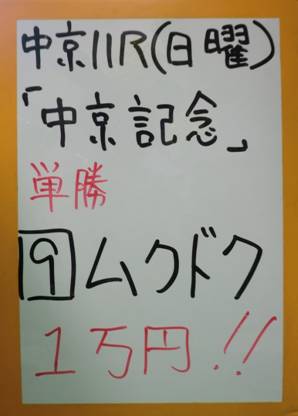 中京11R(日曜)
「中京記念」
単勝
9ムクドク
1万円!!